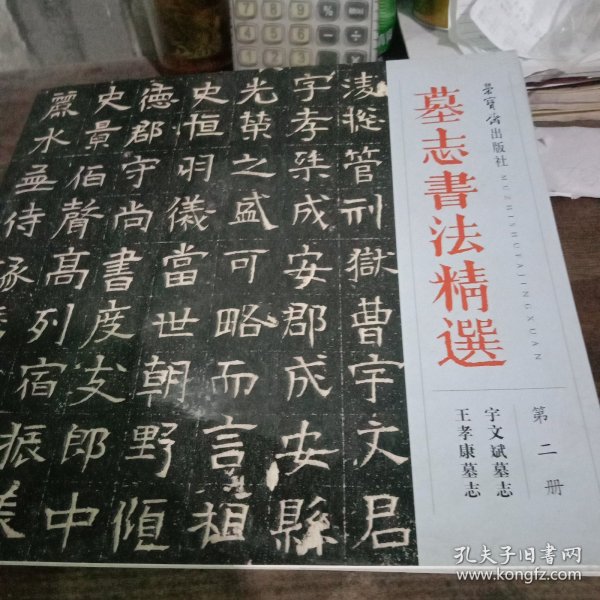 荣宝斋出版社
MUZHISHUFAJINGXUAN
墓志書法精選
第二册
宇文斌墓志
王孝康墓志
淩摐管刑獄曹宇文君
字孝榘成安郡成安縣
光榮之盛可略而言祖
史恒羽儀當世朝野傾
德郡守尚書度支郎中
史景伯聲高列宿振
麗水
侍
孔夫子旧书网
www.kongfz.com